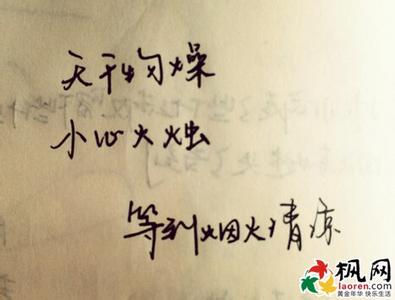 天干物燥
小心火烛
等到烟火清凉
枫网
laoren.com
黄金年华 快乐生活